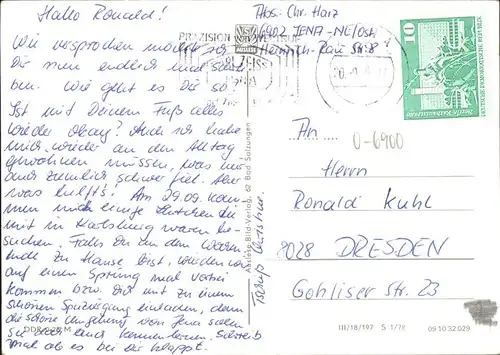 Hallo Ronald!
Wie versprochen möchte ich
Dir nun endlich mal schrei-
ben. Wie geht es Dir so?
Ist mit Deinem Fuß alles
wieder okay? Auch ich habe
mich wieder an den Alltag
gewöhnen müssen, was mir
auch ziemlich schwer fiel. Aber
was hilft's! Am 29.09. kom-
men noch einige Mädchen die
mit in waren be-
suchen. Falls Du an dem Wochen-
ende zu Hause bist, würden wir
auf einen Sprung mal vorbei
kommen bzw. Dich mit zu einem
schönen Spaziergang einladen, denn
die schöne Umgebung von Jena sollen
sie auch einmal kennenlernen. Schreib
mal ob es bei Dir klappt.
Tschüß Christine
PRÄZISION
ZEISS
JENA
Abs. Chr. Harz
6902 JENA-NL/Ost
Heinrich-Rau-Str. 8
10
DEUTSCHE DEMOKRATISCHE REPUBLIK
An
O-6900
Herrn
Ronald Kuhl
8028 DRESDEN
Gohliser Str. 23
Auslese-Bild-Verlag, 62 Bad Salzungen
DDR 0,20 M
III/18/197 S 1/78
09 10 32 029